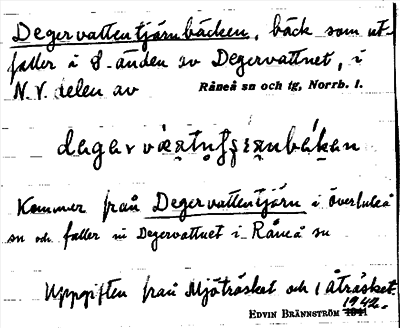 Degervattentjärnbäcken, bäck som ut-
faller i S. änden av Degervattnet, i
N.V. delen av Råneå sn och tg, Norrb. l.
Kommer från Degervattentjärn i Överluleå
sn och faller in Degervattnet i Råneå sn
Uppgiften från Mjöträsket och Låträsket.
EDVIN BRÄNNSTRÖM 1942.